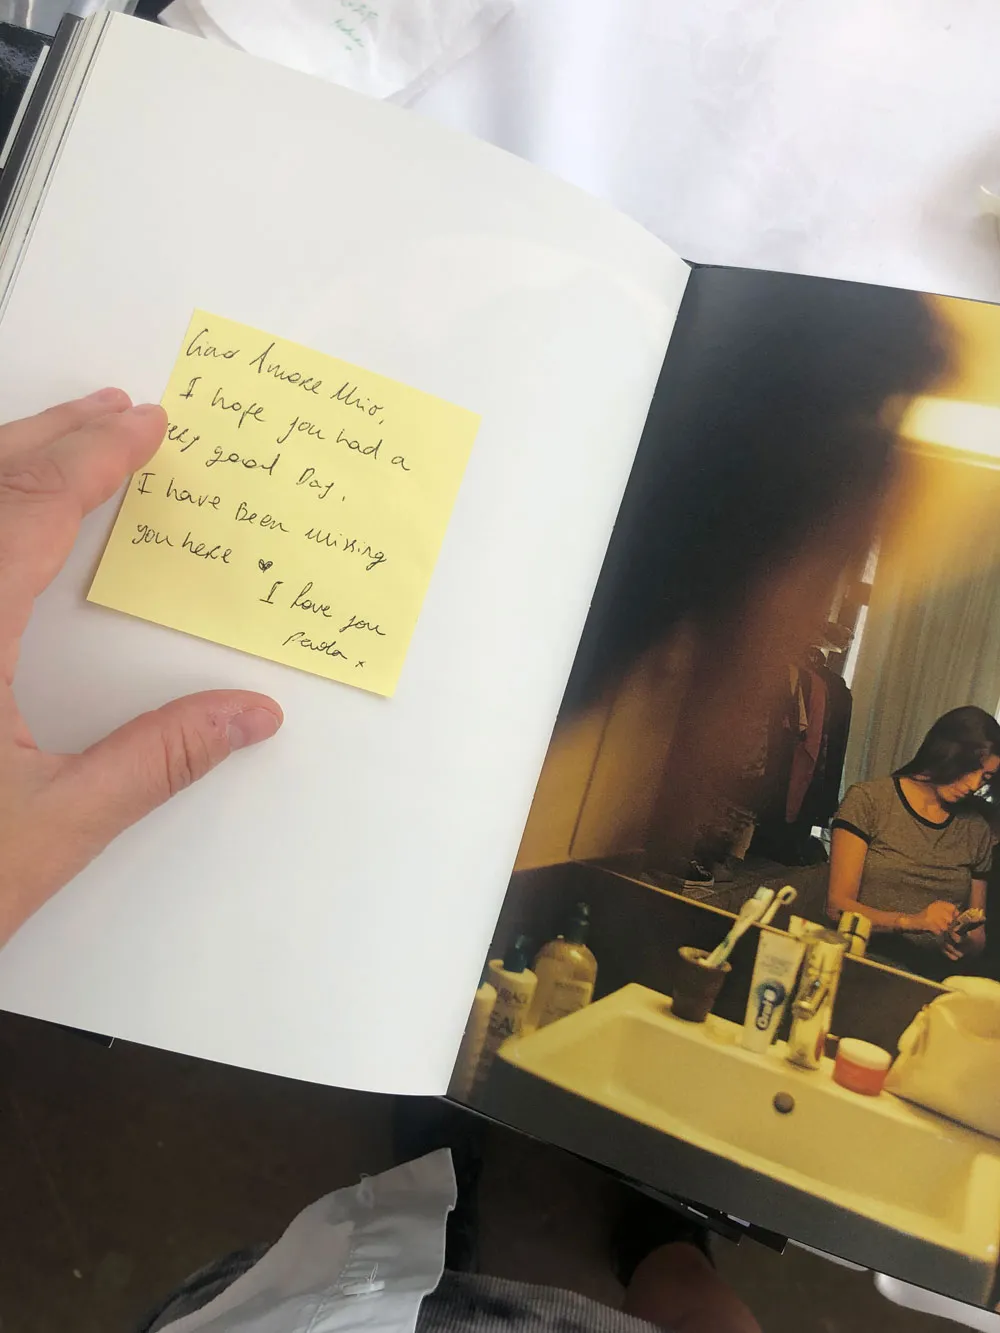 Ciao Amore Mio,
I hope you had a
very good Day.
I have Been missing
you here ♥
I love you
Paola x
Oral B
EAU